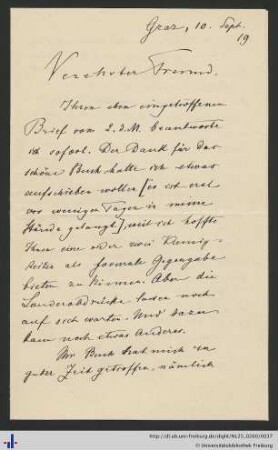 Graz, 10. Sept.
19
Verehrter Freund.
Ihren eben eingetroffenen
Brief vom 2. d. M. beantworte
ich sofort. Der Dank für das
schöne Buch hatte ich etwas
aufschieben wollen [es ist erst
vor wenigen Tagen in meine
Hände gelangt], weil ich hoffte
Ihnen eine oder zwei Kleinig-
keiten als formale Gegengabe
bieten zu können. Aber die
Sonderabdrücke lassen noch
auf sich warten. Und dazu
kam noch etwas Anderes.
Ihr Buch traf mich zu
guter Zeit getroffen, nämlich
http://dl.ub.uni-freiburg.de/diglit/NL25_0000/0037
© Universitätsbibliothek Freiburg